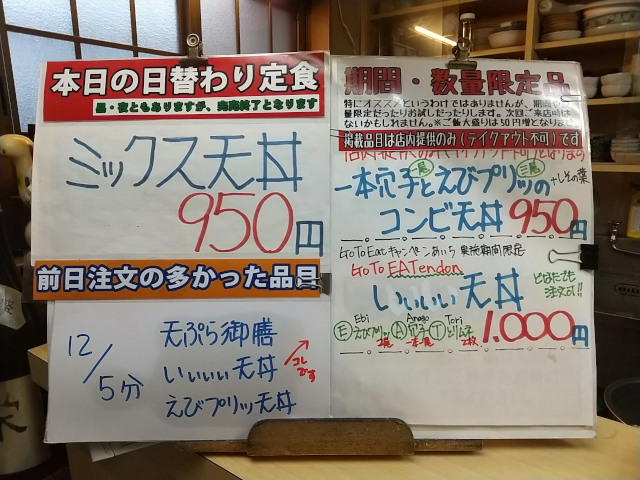 本日の日替わり定食
昼・夜ともありますが、完売終了となります
ミックス天丼
950円
前日注文の多かった品目
12/5分
天ぷら御膳
いいいい天丼
コレです
えびプリッツ天丼
期間・数量限定品
特にオススメというわけではありませんが、期間や
量限定だったりお試しだったりします。次回ご来店時は
ないかもしれません。※ご飯大盛りは50円増となりま
掲載品目は店内提供のみ(テイクアウト不可)です
一尾 三尾
一本穴子とえびプリッツの +しその葉
コンビ天丼 950円
GoTo Eatキャンペーンあいち 実施期間限定
GoTo EATendon
いいいい天丼 どなたでも注文可!!
Ebi Anago Tori
E えびプリッツ 2尾 A 穴子 一本一尾 T とりム子 2枚 1.000円